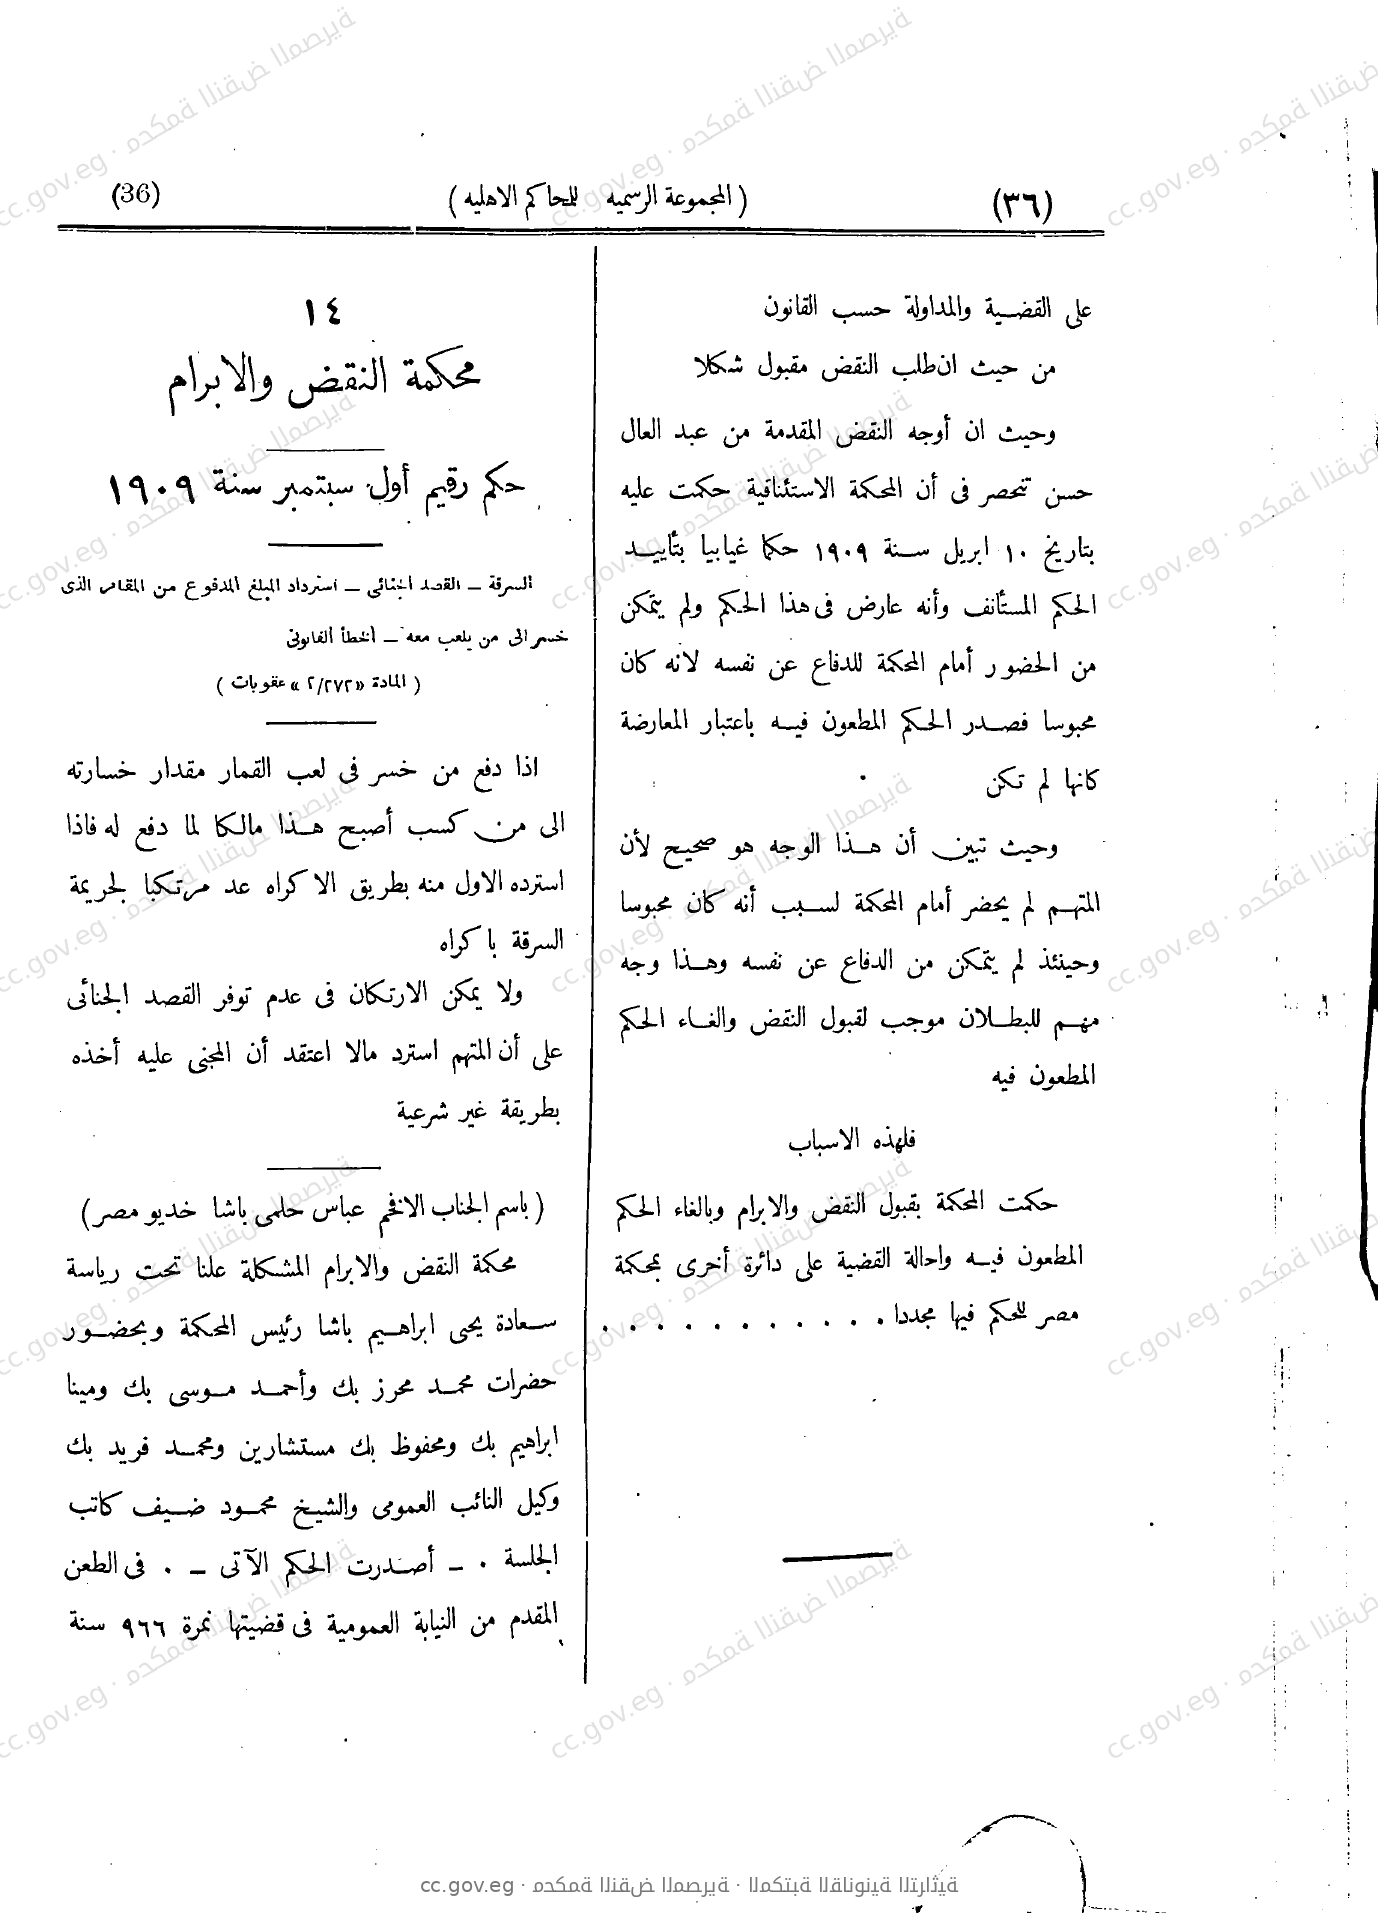 (٣٦)
( المجموعة الرسميه للمحاكم الاهليه )
(36)
على القضية والمداولة حسب القانون
من حيث ان طلب النقض مقبول شكلا
وحيث ان أوجه النقض المقدمة من عبد العال
حسن تنحصر فى أن المحكمة الاستئنافية حكمت عليه
بتاريخ ١٠ ابريل سنة ١٩٠٩ حكما غيابيا بتأييد
الحكم المستأنف وأنه عارض فى هذا الحكم ولم يتمكن
من الحضور أمام المحكمة للدفاع عن نفسه لانه كان
محبوسا فصدر الحكم المطعون فيه باعتبار المعارضة
كانها لم تكن
وحيث تبين أن هذا الوجه هو صحيح لأن
المتهم لم يحضر أمام المحكمة لسبب أنه كان محبوسا
وحينئذ لم يتمكن من الدفاع عن نفسه وهذا وجه
مهم للبطلان موجب لقبول النقض والغاء الحكم
المطعون فيه
فلهذه الاسباب
حكمت المحكمة بقبول النقض والابرام وبالغاء الحكم
المطعون فيه واحالة القضية على دائرة أخرى بمحكمة
مصر للحكم فيها مجددا . . . . . . . . . . .
١٤
محكمة النقض والابرام
حكم رقيم أول سبتمبر سنة ١٩٠٩
السرقة ــ القصد الجنائى ــ استرداد المبلغ المدفوع من المقامر الذى
خسر الى من يلعب معه ــ الخطأ القانونى
( المادة «٢/٢٧٢» عقوبات )
اذا دفع من خسر فى لعب القمار مقدار خسارته
الى من كسب أصبح هذا مالكا لما دفع له فاذا
استرده الاول منه بطريق الاكراه عد مرتكبا لجريمة
السرقة باكراه
ولا يمكن الارتكان فى عدم توفر القصد الجنائى
على أن المتهم استرد مالا اعتقد أن المجنى عليه أخذه
بطريقة غير شرعية
( باسم الجناب الافخم عباس حلمى باشا خديو مصر )
محكمة النقض والابرام المشكلة علنا تحت رياسة
سعادة يحيى ابراهيم باشا رئيس المحكمة وبحضور
حضرات محمد محرز بك وأحمد موسى بك ومينا
ابراهيم بك ومحفوظ بك مستشارين ومحمد فريد بك
وكيل النائب العمومى والشيخ محمود ضيف كاتب
الجلسة . ــ أصدرت الحكم الآتى ــ . فى الطعن
المقدم من النيابة العمومية فى قضيتها نمرة ٩٦٦ سنة
cc.gov.eg · محكمة النقض المصرية · المكتبة القانونية التراثية